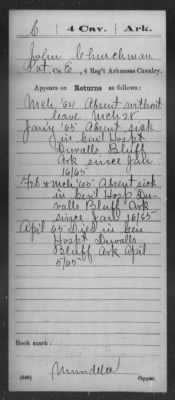 C | 4 Cav. | Ark.
John Churchman
Pvt., Co. E, 4 Reg't Arkansas Cavalry.
Appears on Returns as follows:
Mch '64 Absent without
leave Mch 28
Jany '65 Absent sick
in Genl Hospt
Duvalls Bluff
Ark since Jan
16/65
Feb & Mch '65 Absent sick
in Genl Hosp Du-
valls Bluff Ark
since Jany 16/65
April 65 Died in Gen
Hospt Duvalls
Bluff Ark April
5/65
Book mark:
(546)
Copyist.